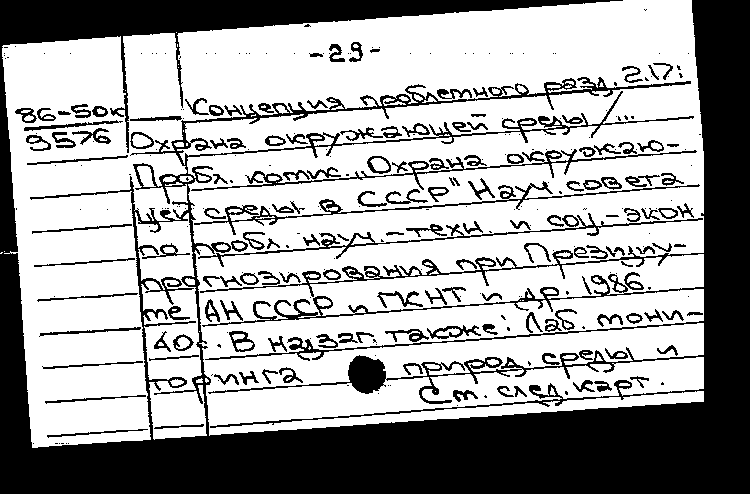 -29-
Концепция проблемного разд. 2.17:
86-50к
9576
Охрана окружающей среды / ...
Пробл. комис. „Охрана окружаю-
щей среды в СССР" Науч. совета
по пробл. науч.-техн. и соц.-экон.
прогнозирования при Президиу-
ме АН СССР и ГКНТ и др. 1986.
40с. В надзаг. также: Лаб. мони-
торинга природ. среды и
См. след. карт.